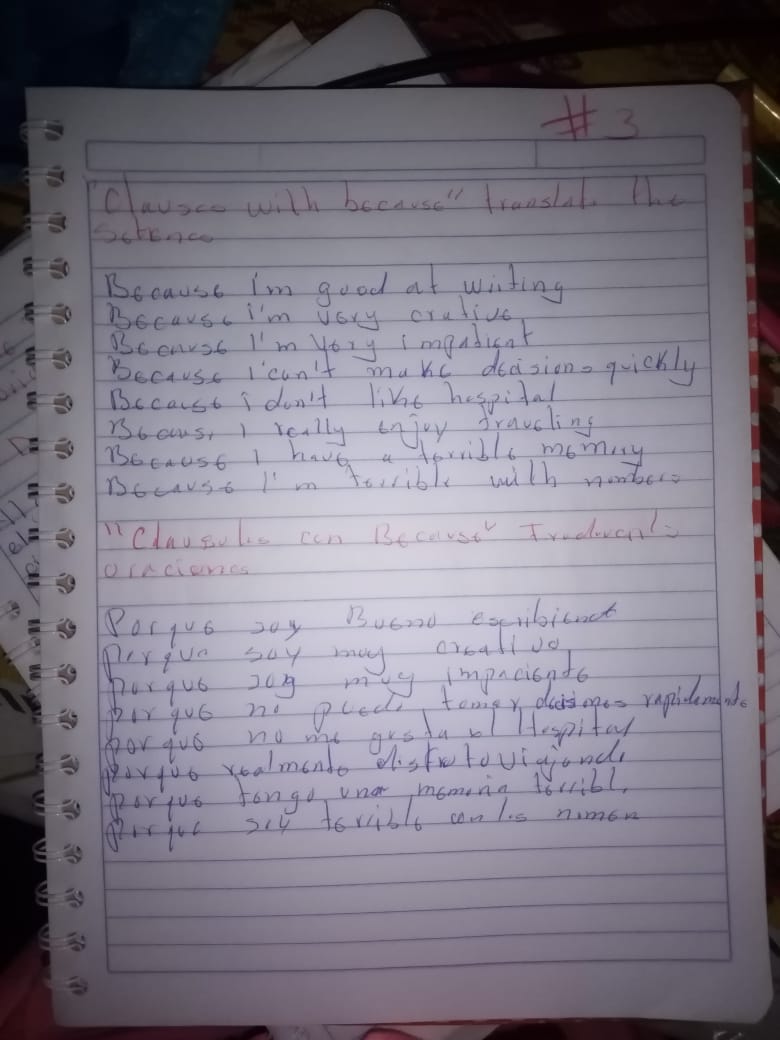 # 3
"Clauses with because" translate the
Setence
Because I'm good at writing
Because i'm very crative
Because I'm very impatient
Because I can't make decisions quickly
Because i don't like hospital
Because I really enjoy traveling
Because I have a terrible memory
Because I'm terrible with numbers
"Clausulas con Because" Traducent
oraciones
Porque soy Bueno escribiendo
porque soy muy creativo
porque soy muy impaciente
porque no puedo tomar decisiones rapidamente
porque no me gusta el Hospital
porque realmente disfruto viajando
porque tengo una memoria terrible
porque soy terrible con los